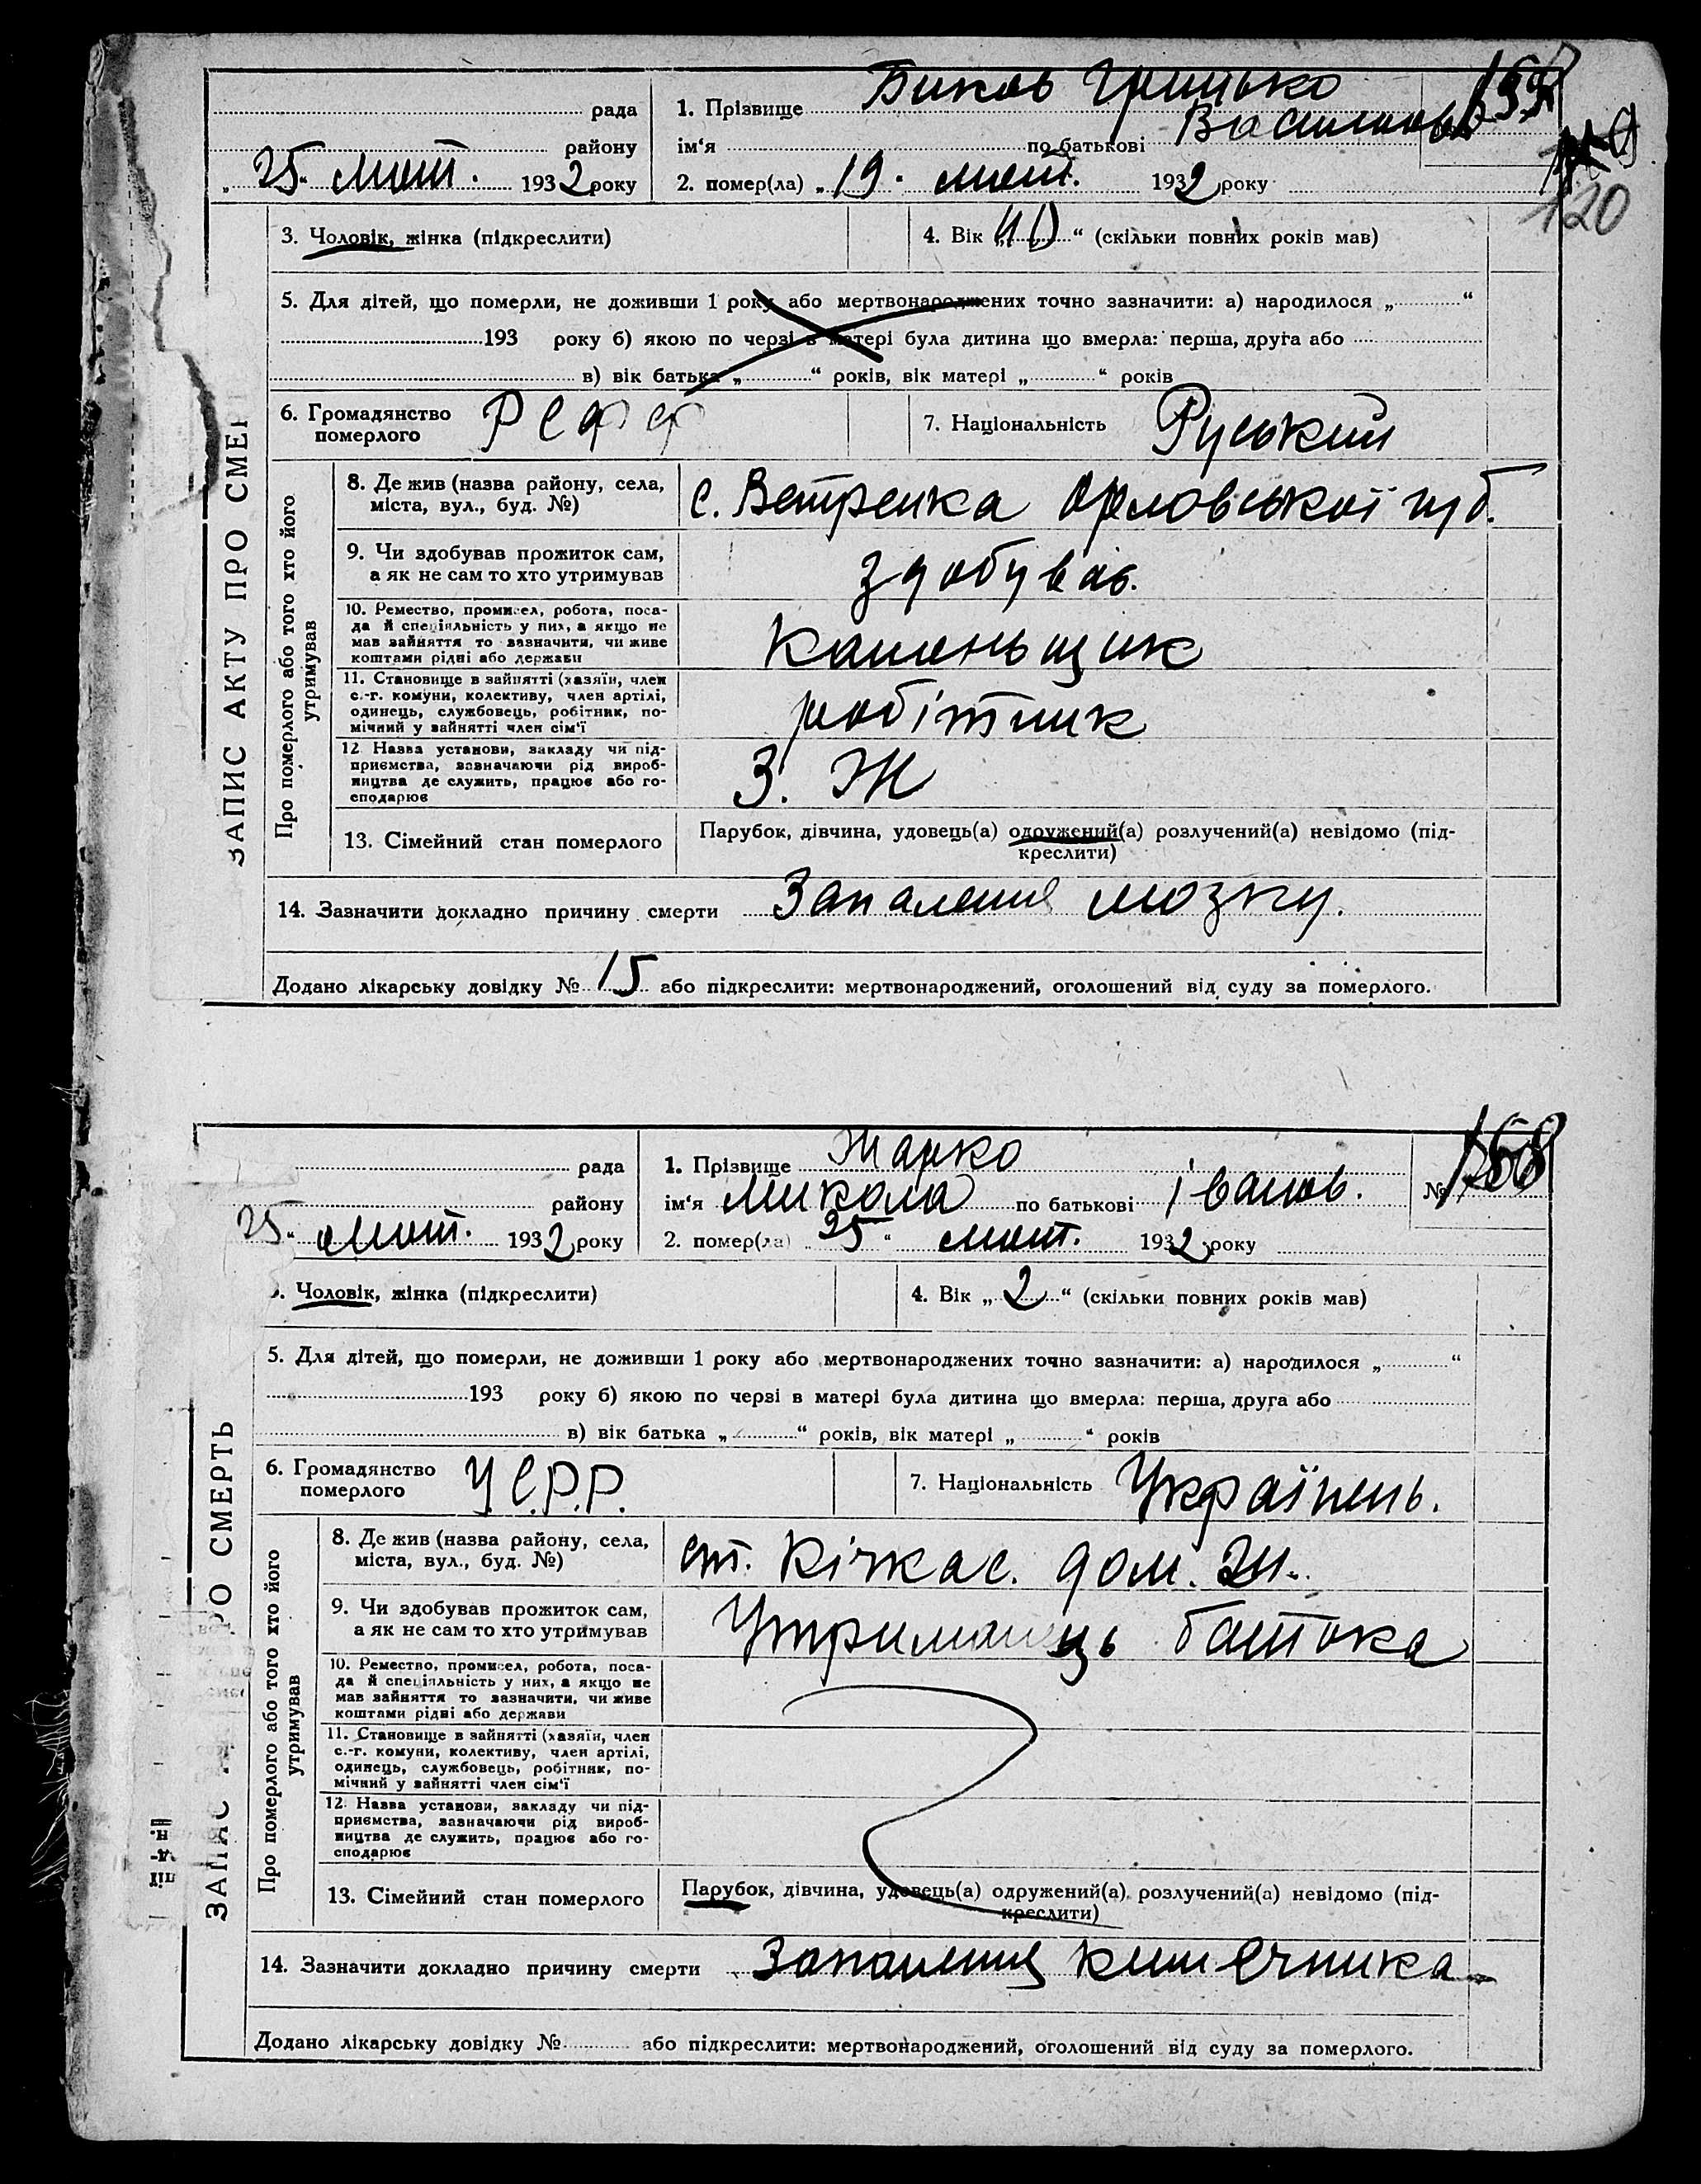 Биков Грицько
рада 1. Прізвище
Василтов
району ім'я по батькові
„25" лют. 1932 року 2. помер(ла) „19" лют. 1932 року
120
3. Чоловік, жінка (підкреслити) 4. Вік „40" (скільки повних років мав)
5. Для дітей, що померли, не доживши 1 року або мертвонароджених точно зазначити: а) народилося „ "
193 року б) якою по черзі в матері була дитина що вмерла: перша, друга або
в) вік батька „ " років, вік матері „ " років
6. Громадянство РСФСР 7. Національність Руський
померлого
ЗАПИС АКТУ ПРО СМЕР
Про померлого або того хто його
утримував
8. Де жив (назва району, села, с. Ветренка Орловської губ.
міста, вул., буд. №)
9. Чи здобував прожиток сам, здобував.
а як не сам то хто утримував
10. Ремество, промисел, робота, поса-
да й спеціяльність у них, а якщо не
мав зайняття то зазначити, чи живе Каменьщик
коштами рідні або держави
11. Становище в зайнятті (хазяїн, член
с.-г. комуни, колективу, член артілі,
одинець, службовець, робітник, по- робітник
мічний у зайнятті член сім'ї
12. Назва установи, закладу чи під-
приємства, зазначаючи рід вироб- З. Ж
ництва де служить, працює або го-
сподарює
13. Сімейний стан померлого Парубок, дівчина, удовець(а) одружений(а) розлучений(а) невідомо (під-
креслити)
14. Зазначити докладно причину смерти Запалення мозку.
Додано лікарську довідку № 15 або підкреслити: мертвонароджений, оголошений від суду за померлого.
рада 1. Прізвище Жарко
району ім'я Микола по батькові Іванов. № 158
25" лют. 1932 року 2. помер(ла) „25" лют. 1932 року
. Чоловік, жінка (підкреслити) 4. Вік „2" (скільки повних років мав)
5. Для дітей, що померли, не доживши 1 року або мертвонароджених точно зазначити: а) народилося „ "
193 року б) якою по черзі в матері була дитина що вмерла: перша, друга або
в) вік батька „ " років, вік матері „ " років
6. Громадянство У.С.Р.Р. 7. Національність Українець.
померлого
ЗАПИС РО СМЕРТЬ
Про померлого або того хто його
утримував
8. Де жив (назва району, села, ст. Кічкас. дом.
міста, вул., буд. №)
9. Чи здобував прожиток сам, Утриманець батька
а як не сам то хто утримував
10. Ремество, промисел, робота, поса-
да й спеціяльність у них, а якщо не
мав зайняття то зазначити, чи живе
коштами рідні або держави
11. Становище в зайнятті (хазяїн, член
с.-г. комуни, колективу, член артілі,
одинець, службовець, робітник, по-
мічний у зайнятті член сім'ї
12. Назва установи, закладу чи під-
приємства, зазначаючи рід вироб-
ництва де служить, працює або го-
сподарює
13. Сімейний стан померлого Парубок, дівчина, удовець(а) одружений(а) розлучений(а) невідомо (під-
креслити)
14. Зазначити докладно причину смерти Запалення кишечника
Додано лікарську довідку № або підкреслити: мертвонароджений, оголошений від суду за померлого.